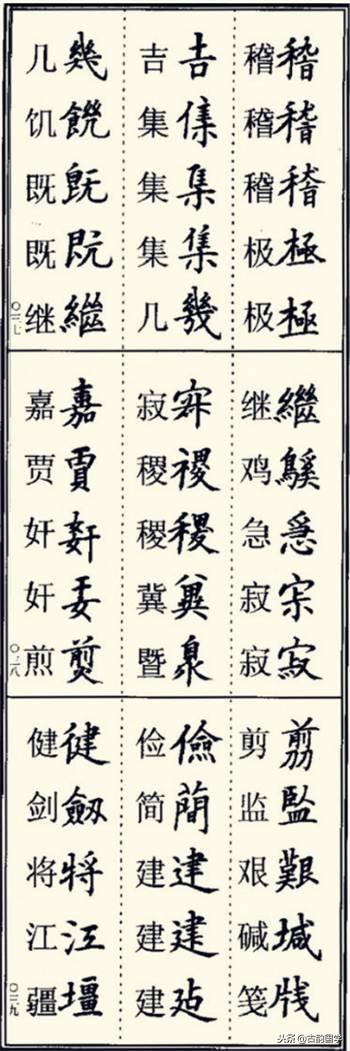 稽稽稽極極
稽稽稽极极
𠮷㑫集集幾
吉集集集几
幾饑旣既繼
几饥既既继
〇三七
繼寂
继鸡急寂寂
禝稷兾臮
寂稷稷冀暨
嘉賈姧
嘉贾奸奸煎
〇三八
剪監艱堿牋
剪监艰碱笺
儉蕳建建
俭简建建建
健劔將江壃
健剑将江疆
〇三九
头条@古韵国学